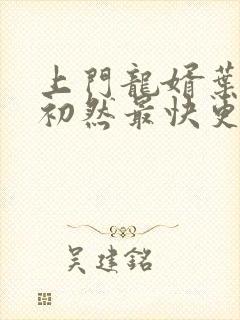 上門龍婿葉
初然最快更
吴建銘